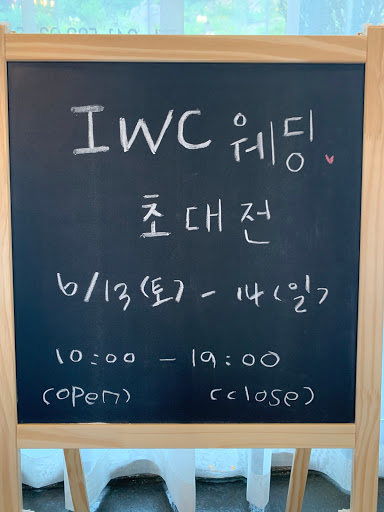 IWC 웨딩
초대전
6/13(토) - 14(일)
10:00 - 19:00
(open) (close)